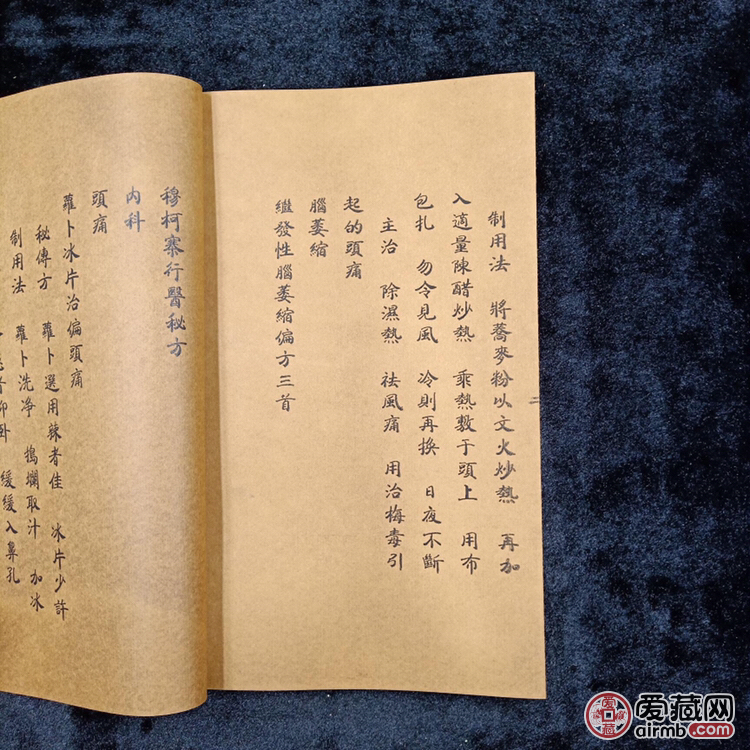 制用法 將蕎麥粉以文火炒熱 再加
入適量陳醋炒熱 乘熱敷于頭上 用布
包扎 勿令見風 冷則再換 日夜不斷
主治 除濕熱 祛風痛 用治梅毒引
起的頭痛
腦萎縮
繼發性腦萎縮偏方三首
二
穆柯寨行醫秘方
内科
頭痛
蘿卜冰片治偏頭痛
秘傳方 蘿卜選用辣者佳 冰片少許
制用法 蘿卜洗净 搗爛取汁 加冰
仰卧 緩緩入鼻孔
爱藏网
airmb.com